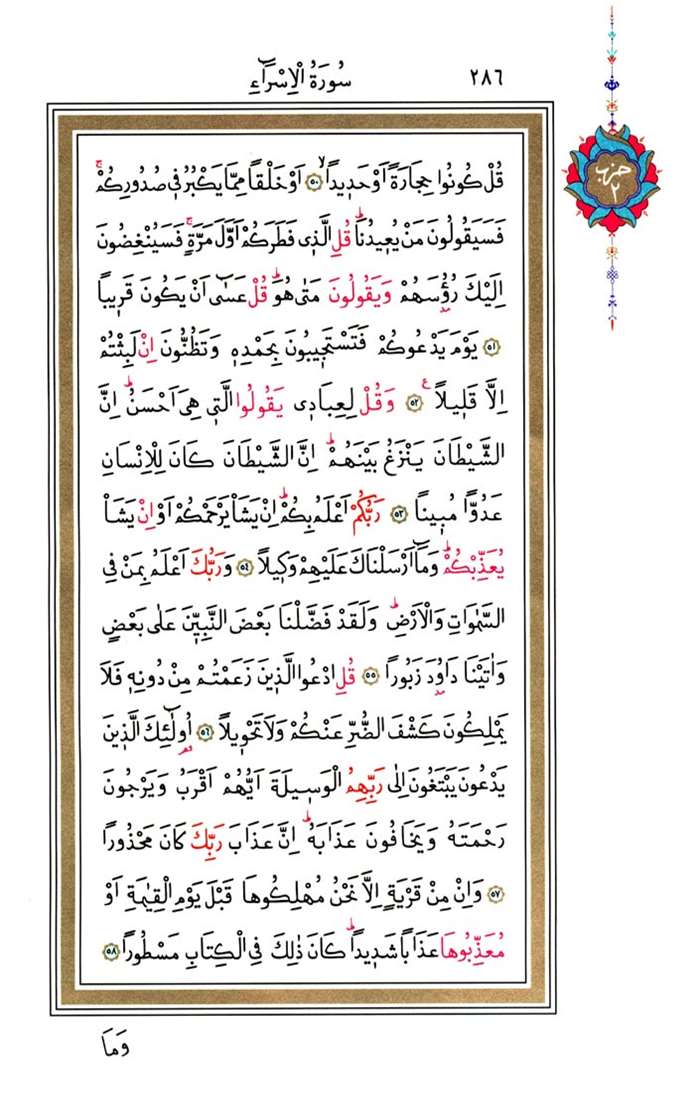 سُورَةُ الْاِسْرَٓاءِ ٢٨٦
حزب ٢
قُلْ كُونُوا حِجَارَةً اَوْ حَد۪يداًۙ ٥٠ اَوْ خَلْقاً مِمَّا يَكْبُرُ ف۪ي صُدُورِكُمْۚ
فَسَيَقُولُونَ مَنْ يُع۪يدُنَاۜ قُلِ الَّذ۪ي فَطَرَكُمْ اَوَّلَ مَرَّةٍۚ فَسَيُنْغِضُونَ
اِلَيْكَ رُؤُ۫سَهُمْ وَيَقُولُونَ مَتٰى هُوَۜ قُلْ عَسٰٓى اَنْ يَكُونَ قَر۪يباً
٥١ يَوْمَ يَدْعُوكُمْ فَتَسْتَج۪يبُونَ بِحَمْدِه۪ وَتَظُنُّونَ اِنْ لَبِثْتُمْ
اِلَّا قَل۪يلاً۟ ٥٢ وَقُلْ لِعِبَاد۪ي يَقُولُوا الَّت۪ي هِيَ اَحْسَنُۜ اِنَّ
الشَّيْطَانَ يَنْزَغُ بَيْنَهُمْۜ اِنَّ الشَّيْطَانَ كَانَ لِلْاِنْسَانِ
عَدُوًّا مُب۪يناً ٥٣ رَبُّكُمْ اَعْلَمُ بِكُمْۜ اِنْ يَشَأْ يَرْحَمْكُمْ اَوْ اِنْ يَشَأْ
يُعَذِّبْكُمْۜ وَمَٓا اَرْسَلْنَاكَ عَلَيْهِمْ وَك۪يلاً ٥٤ وَرَبُّكَ اَعْلَمُ بِمَنْ فِي
السَّمٰوَاتِ وَالْاَرْضِۜ وَلَقَدْ فَضَّلْنَا بَعْضَ النَّبِيّ۪نَ عَلٰى بَعْضٍ
وَاٰتَيْنَا دَاوُ۫دَ زَبُوراً ٥٥ قُلِ ادْعُوا الَّذ۪ينَ زَعَمْتُمْ مِنْ دُونِه۪ فَلَا
يَمْلِكُونَ كَشْفَ الضُّرِّ عَنْكُمْ وَلَا تَحْو۪يلاً ٥٦ اُو۬لٰٓئِكَ الَّذ۪ينَ
يَدْعُونَ يَبْتَغُونَ اِلٰى رَبِّهِمُ الْوَس۪يلَةَ اَيُّهُمْ اَقْرَبُ وَيَرْجُونَ
رَحْمَتَهُ وَيَخَافُونَ عَذَابَهُۜ اِنَّ عَذَابَ رَبِّكَ كَانَ مَحْذُوراً
٥٧ وَاِنْ مِنْ قَرْيَةٍ اِلَّا نَحْنُ مُهْلِكُوهَا قَبْلَ يَوْمِ الْقِيٰمَةِ اَوْ
مُعَذِّبُوهَا عَذَاباً شَد۪يداًۜ كَانَ ذٰلِكَ فِي الْكِتَابِ مَسْطُوراً ٥٨
وَمَا